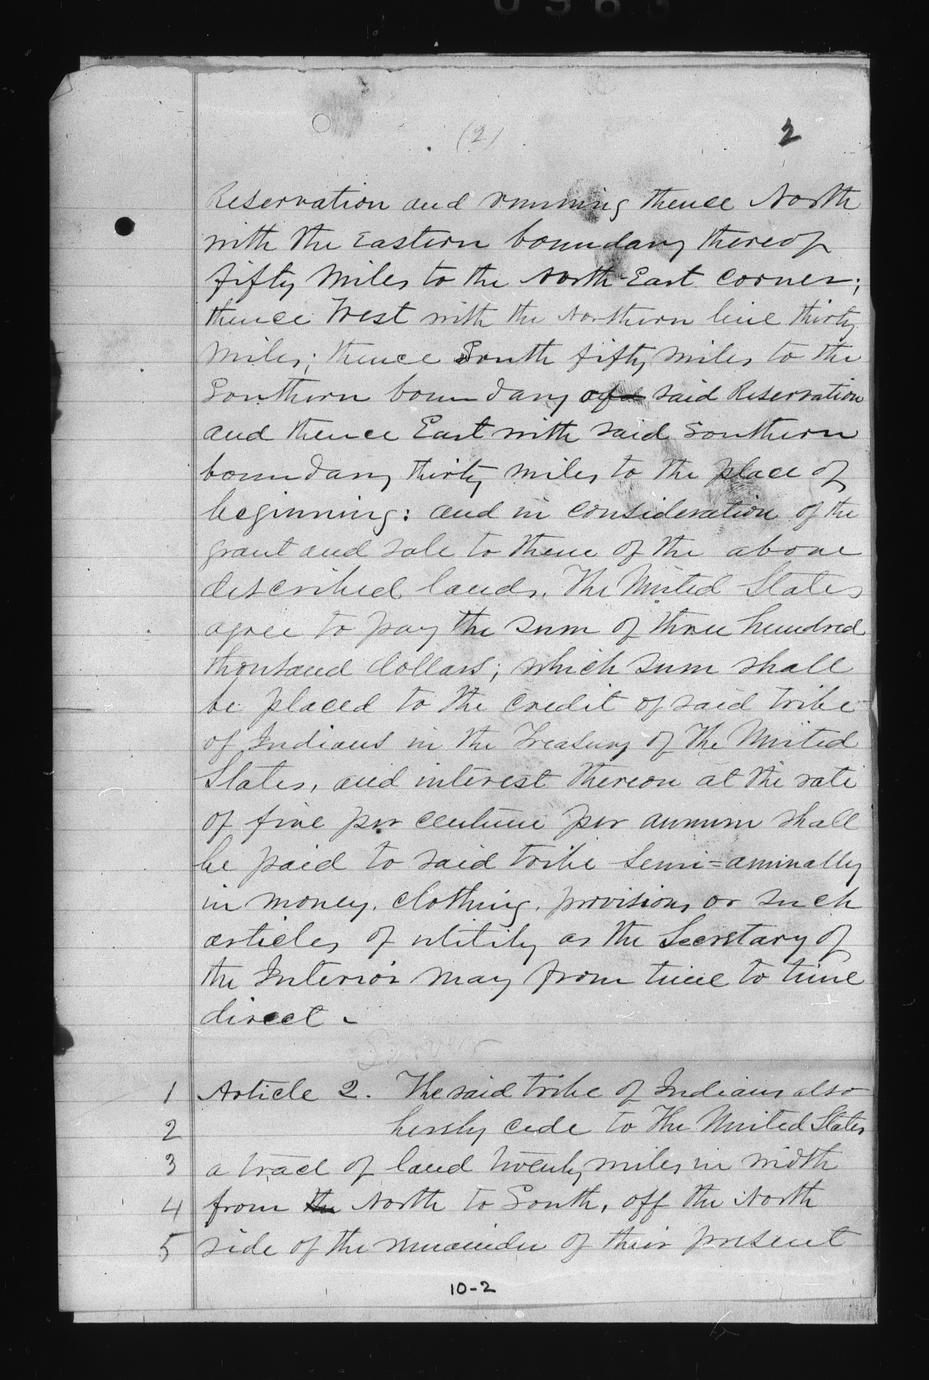 (2) 2
Reservation and running thence North
with the Eastern boundary thereof
fifty miles to the North-East corner;
thence West with the Northern line thirty
miles; thence South fifty miles to the
Southern boundary of said Reservation
and thence East with said Southern
boundary thirty miles to the place of
beginning: and in consideration of the
grant and sale to them of the above
described lands, The United States
agree to pay the sum of three hundred
thousand dollars; which sum shall
be placed to the credit of said tribe
of Indians in the Treasury of the United
States, and interest thereon at the rate
of five per centum per annum shall
be paid to said tribe semi=annually
in money, clothing, provisions or such
articles of utility as the Secretary of
the Interior may from time to time
direct -
1 Article 2. The said tribe of Indians also
2 hereby cede to The United States
3 a tract of land twenty miles in width
4 from the North to South, off the North
5 side of the remainder of their present
10-2